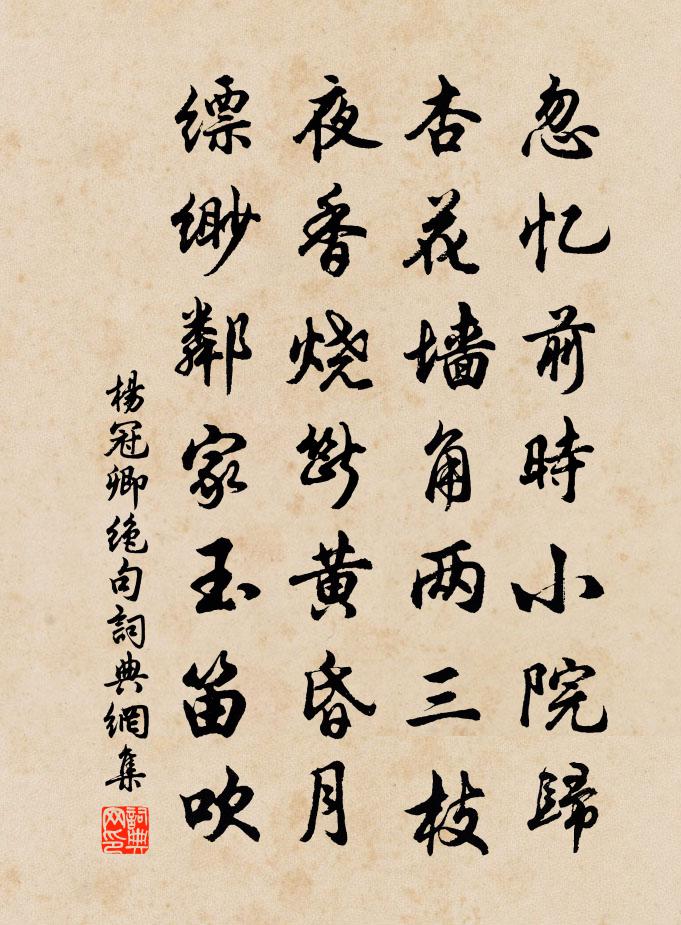 忽忆前時小院歸
杏花墙角两三枝
夜香烧断黄昏月
缥缈鄰家玉笛吹
楊冠卿绝句詞典網集
詞典網印